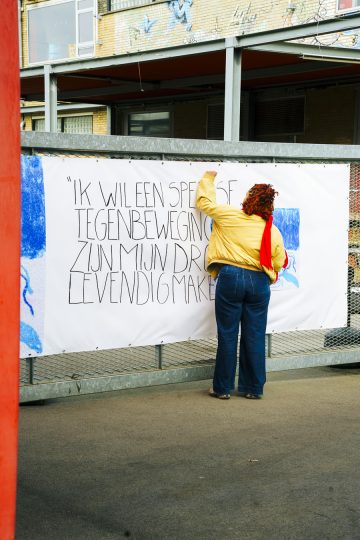 "IK WIL EEN SPE SE
TEGENBEWEGING
ZIJN MIJN DR
LEVENDIG MAKE